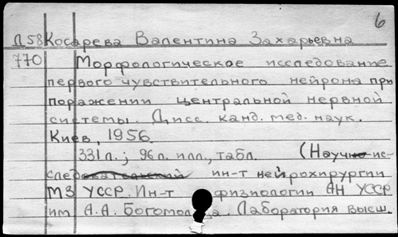 6
Д58 Косарева Валентина Захарьевна
770 Морфологическое исследование
первого чувствительного нейрона при
поражении центральной нервной
системы. Дисс. канд. мед. наук.
Киев, 1956.
331 л.; 96 л. илл., табл. (Научно ис-
следовательский ин-т нейрохирургии
МЗ УССР. Ин-т физиологии АН УССР
им. А.А. Богомольца. Лаборатория высш.